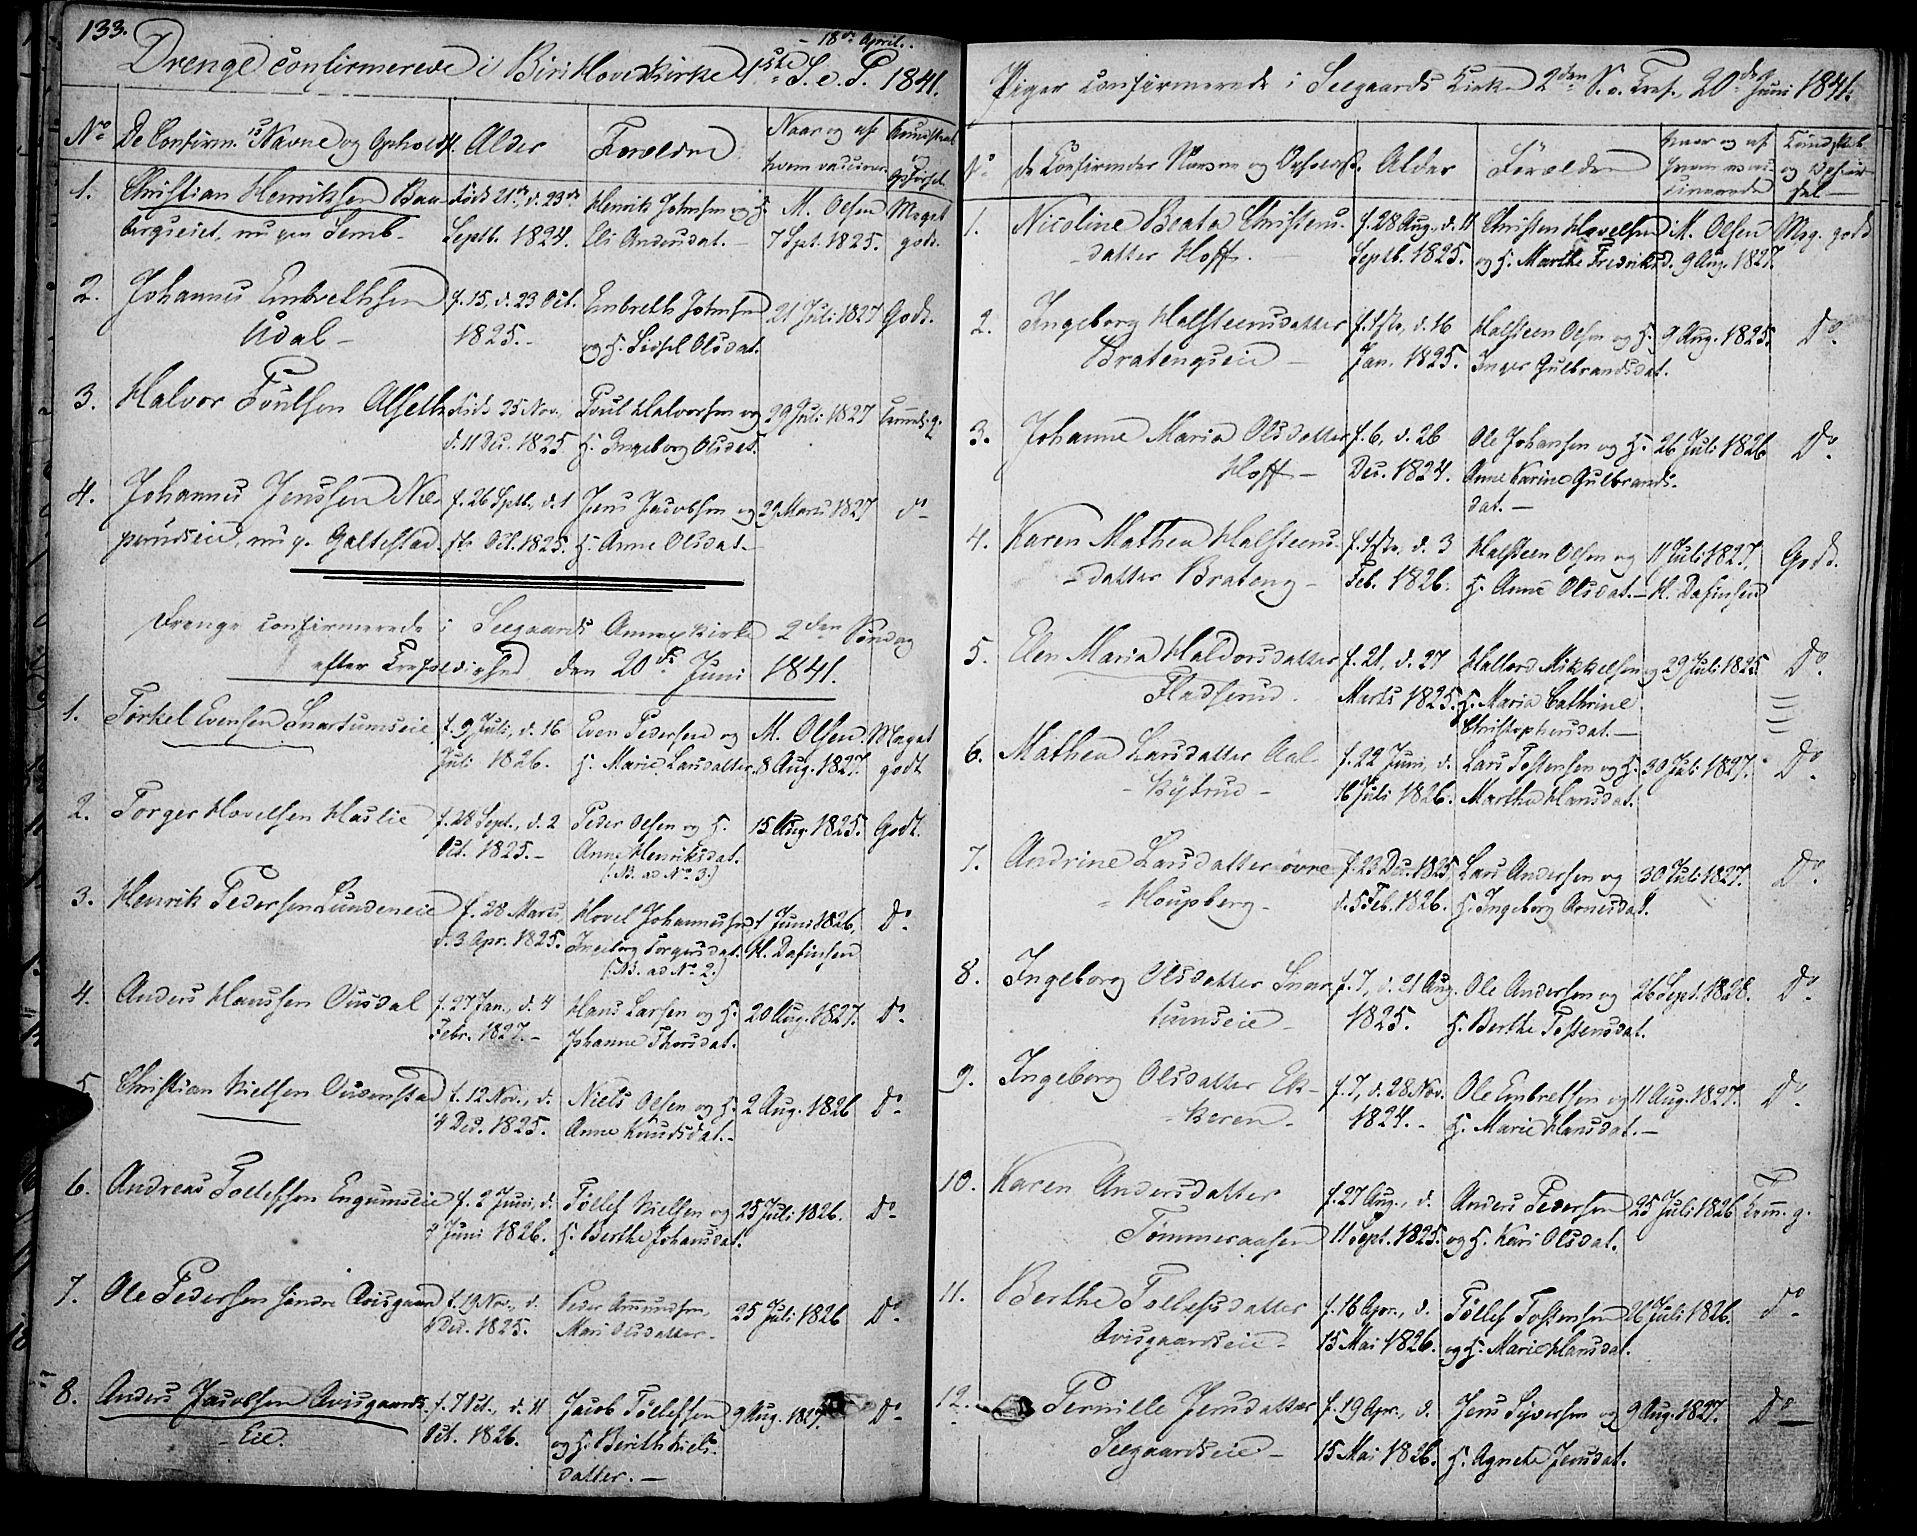 133.
18de April.
Drenge confirmerede i Biri Hovedkirke 1ste S. e. P. 1841.
No De Confirm.s Navne og Opholdst. Alder Forældre Naar og af hvem vaccinered Kundskab og Opførsel.
1. Christian Henriksen Bau- født 21de, d. 29de Henrik Johnsen og H. M. Olsen Meget
bergseiet, nu paa Semb- Septb. 1824. Eli Andersdat. - 7 Spt. 1825. godt.
2. Johannes Embrethsen f. 15, d. 23 Oct. Embreth Johnsen 21 Juli 1827 Godt.
Ådal - 1825. - og H. Sidsel Olsdat.
3. Halvor Poulsen Alseth født 25 Nov., Poul Halvorsen og 29 Juli 1827 Temmel. g.
d. 11 Dec. 1825 H. Ingeborg Olsdat.
4. Johannes Jenssen Næ- f. 26 Sptb., d. 1 Jens Jacobsen og 29 Marts 1827 do
perudseie, nu p. Galtestad. ste Oct. 1825. H. Anne Olsdat. -
Drenge confirmerede i Seegaards Annexkirke 2den Søndag
efter Trefoldighed den 20de Juni 1841.
1. Torkel Evensen Snartumseie f. 9 Juli, d. 16 Even Pedersen og M. Olsen. Meget
Juli 1826. H. Marie Larsdatter. 8 Aug. 1827. godt
2. Torger Hovelsen Haslie f. 28 Sept., d. 2 Peder Olsen og H. 15 Aug. 1825. Godt.
Oct. 1825. - Anne Henriksdat.
(NB. ad No 3.)
3. Henrik Pedersen Lundeneie f. 28 Marts, Hovel Johannessen 1 Juni 1826, Do
d. 3 Apr. 1825. Ingeborg Torgersdat. H. Dafinsen
(NB. ad No 2.)
4. Anders Hanssen Ousdal f. 27 Jan., d. 4 Hans Larsen og H. 20 Aug. 1827. Do
Febr. 1827. - Johanne Thorsdat.
5. Christian Nielsen Ousenstad f. 12 Nov., d. Niels Olsen og H. 2 Aug. 1826 Do
4 Dec. 1825. Anne Knudsdat. -
6. Andreas Tollefsen Engumseie f. 2 Juni, d. Tollef Nielsen og 25 Juli 1826. Do
Juni 1826. H. Berthe Johansdat.
7. Ole Pedersen søndre Avisgaard f. 19 Nov., d. Peder Amundsen, 25 Juli 1826 Do
Dec. 1825. Mari Olsdatter -
8. Anders Jacobsen Avisgaards- f. 7 Oct., d. 11 Jacob Tollefsen 9 Aug. 1827. Do
Eie. Oct. 1826. og H. Berith Niels-
datter. -
Piger confirmerede i Seegaards Kirke 2den S. e. Tref. 20de Juni 1841.
No de Confirmeredes Navne og Opholdst. Alder Forældre Naar og af hvem vaccinerede Kundskab og Opførsel -
1. Nicoline Beata Christens- f. 28 Aug., d. 11 Christen Hovelsen M. Olsen Meg. godt
datter Hoff. Septb. 1825. og H. Marthe Fredriksd. 9 Aug. 1827.
2. Ingeborg Halsteensdatter f. 1ste, d. 16 Halsteen Olsen og H. 9 Aug. 1825. Do
Bratengseie - Jan. 1825. Inger Gulbrandsdat.
3. Johanne Maria Olsdatter f. 6, d. 26 Ole Johansen og H. 26 Juli 1826 Do
Hoff - Dec. 1824. Anne Karine Gulbrands-
dat. -
4. Karen Mathea Halsteens- f. 1ste, d. 3 Halsteen Olsen og 11 Juli 1827. Godt.
datter Brateng - Feb. 1826. H. Anne Olsdat. - H. Dafinsen
5. Elen Maria Haldorsdatter f. 21, d. 27 Haldord Mikkelsen og 29 Juli 1825 Do
Fladserud. Marts 1825. H. Maria Cathrine
Christophersdat. -
6. Mathea Larsdatter Aal- f. 22 Juni, d. Lars Tostensen og H. 30 Juli 1827. Do
Byerud - 16 Juli 1826. Marthe Hansdat.
7. Andrine Larsdatter övre f. 23 Dec. 1825, Lars Andersen og 30 Juli 1827. Do
Houpberg - d. 5 Feb. 1826. H. Ingeborg Arnesdat.
8. Ingeborg Olsdatter Snar- f. 7, d. 21 Aug. Ole Andersen og 26 Sept. 1828. Do
tumseie - 1825. H. Berthe Tostensdat.
9. Ingeborg Olsdatter Ek- f. 7, d. 28 Nov. Ole Embretsen og 11 Aug. 1827. Do
keren - 1824. - H. Marie Hansdat. -
10. Karen Andersdatter f. 27 Aug., d. Anders Pedersen 25 Juli 1826 Temm. g.
Tømmeraasen 11 Sept. 1825. og H. Kari Olsdat.
11. Berthe Tollefsdatter f. 16 Apr., d. Tollef Tostensen 26 Juli 1826. do
Avisgaardseie - 15 Mai 1826. og H. Marie Hansdat.
12. Pernille Jensdatter f. 19 Apr., d. Jens Syversen og 9 Aug. 1827. Do
Seegaardseie - 15 Mai 1826. H. Agnete Jensdat.